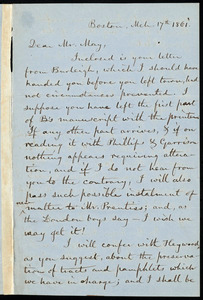 Boston Mch. 17th 1861.
Dear Mr. May,
Inclosed is your letter
from Burleigh, which I should have
handed you before you left town, had
not circumstances prevented. I
suppose you have left the first part
of B's manuscript with the printers.
If any other part arrives, & if on
reading it with Phillips & Garrison
nothing appears requiring altera-
tion, and if I do not hear from
you to the contrary, I will also
pass such possible instalment of
new matter to Mr. Prentiss; and, as
the London boys say — I wish we
may get it!
I will confer with Heywood,
as you suggest, about the preserva-
tion of tracts and pamphlets which
we have in charge; and I shall be